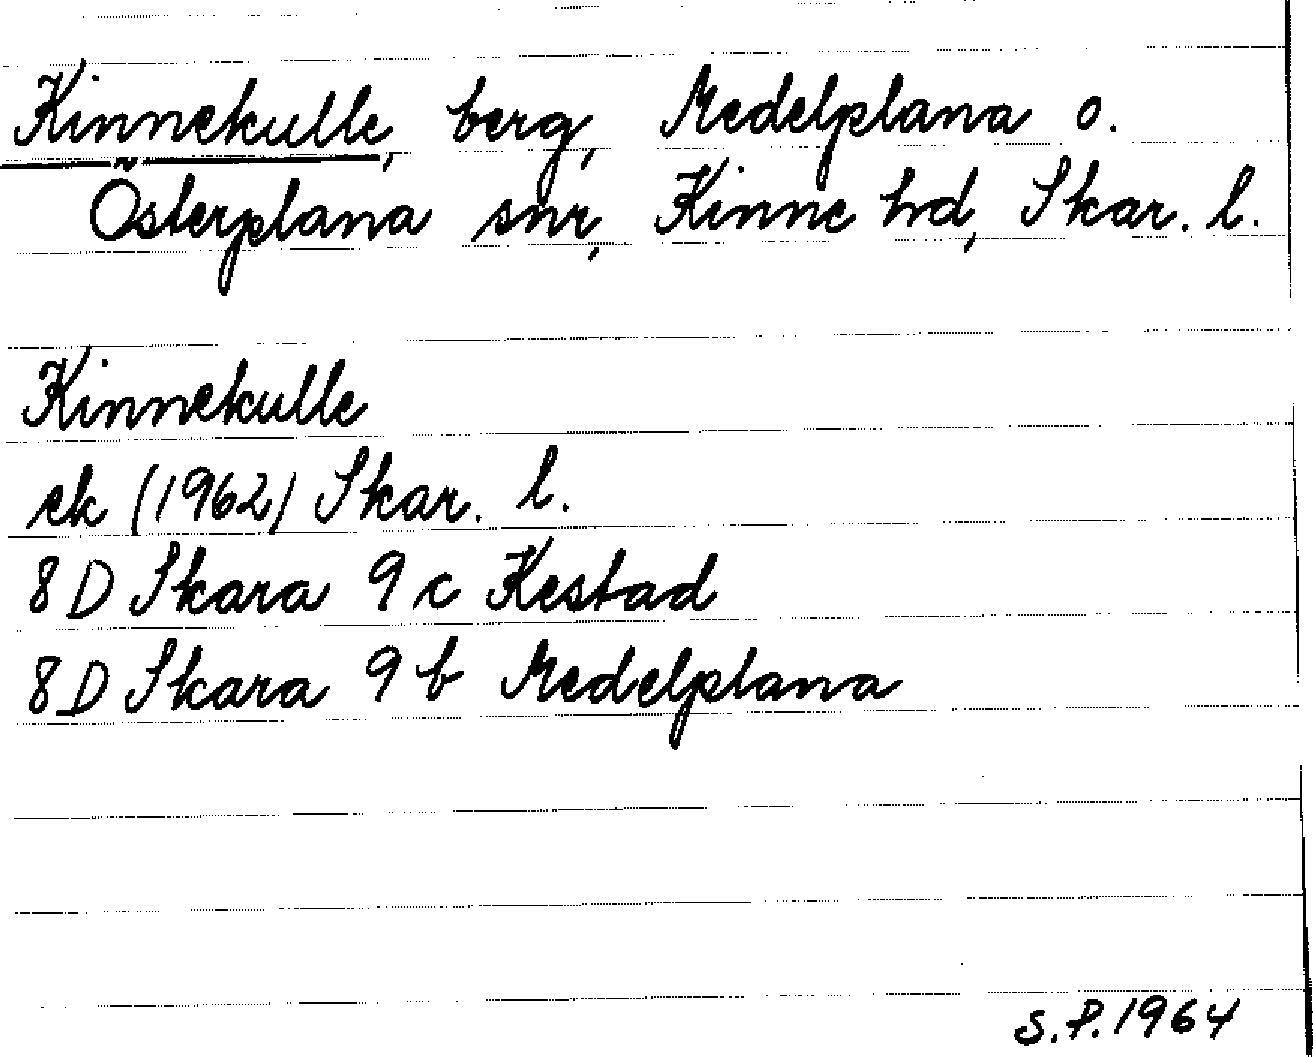 Kinnekulle, berg, Medelplana o.
Österplana snr, Kinne hd, Skar. l.
Kinnekulle
ek (1962) Skar. l.
8D Skara 9c Kestad
8D Skara 9b Medelplana
S.P. 1964